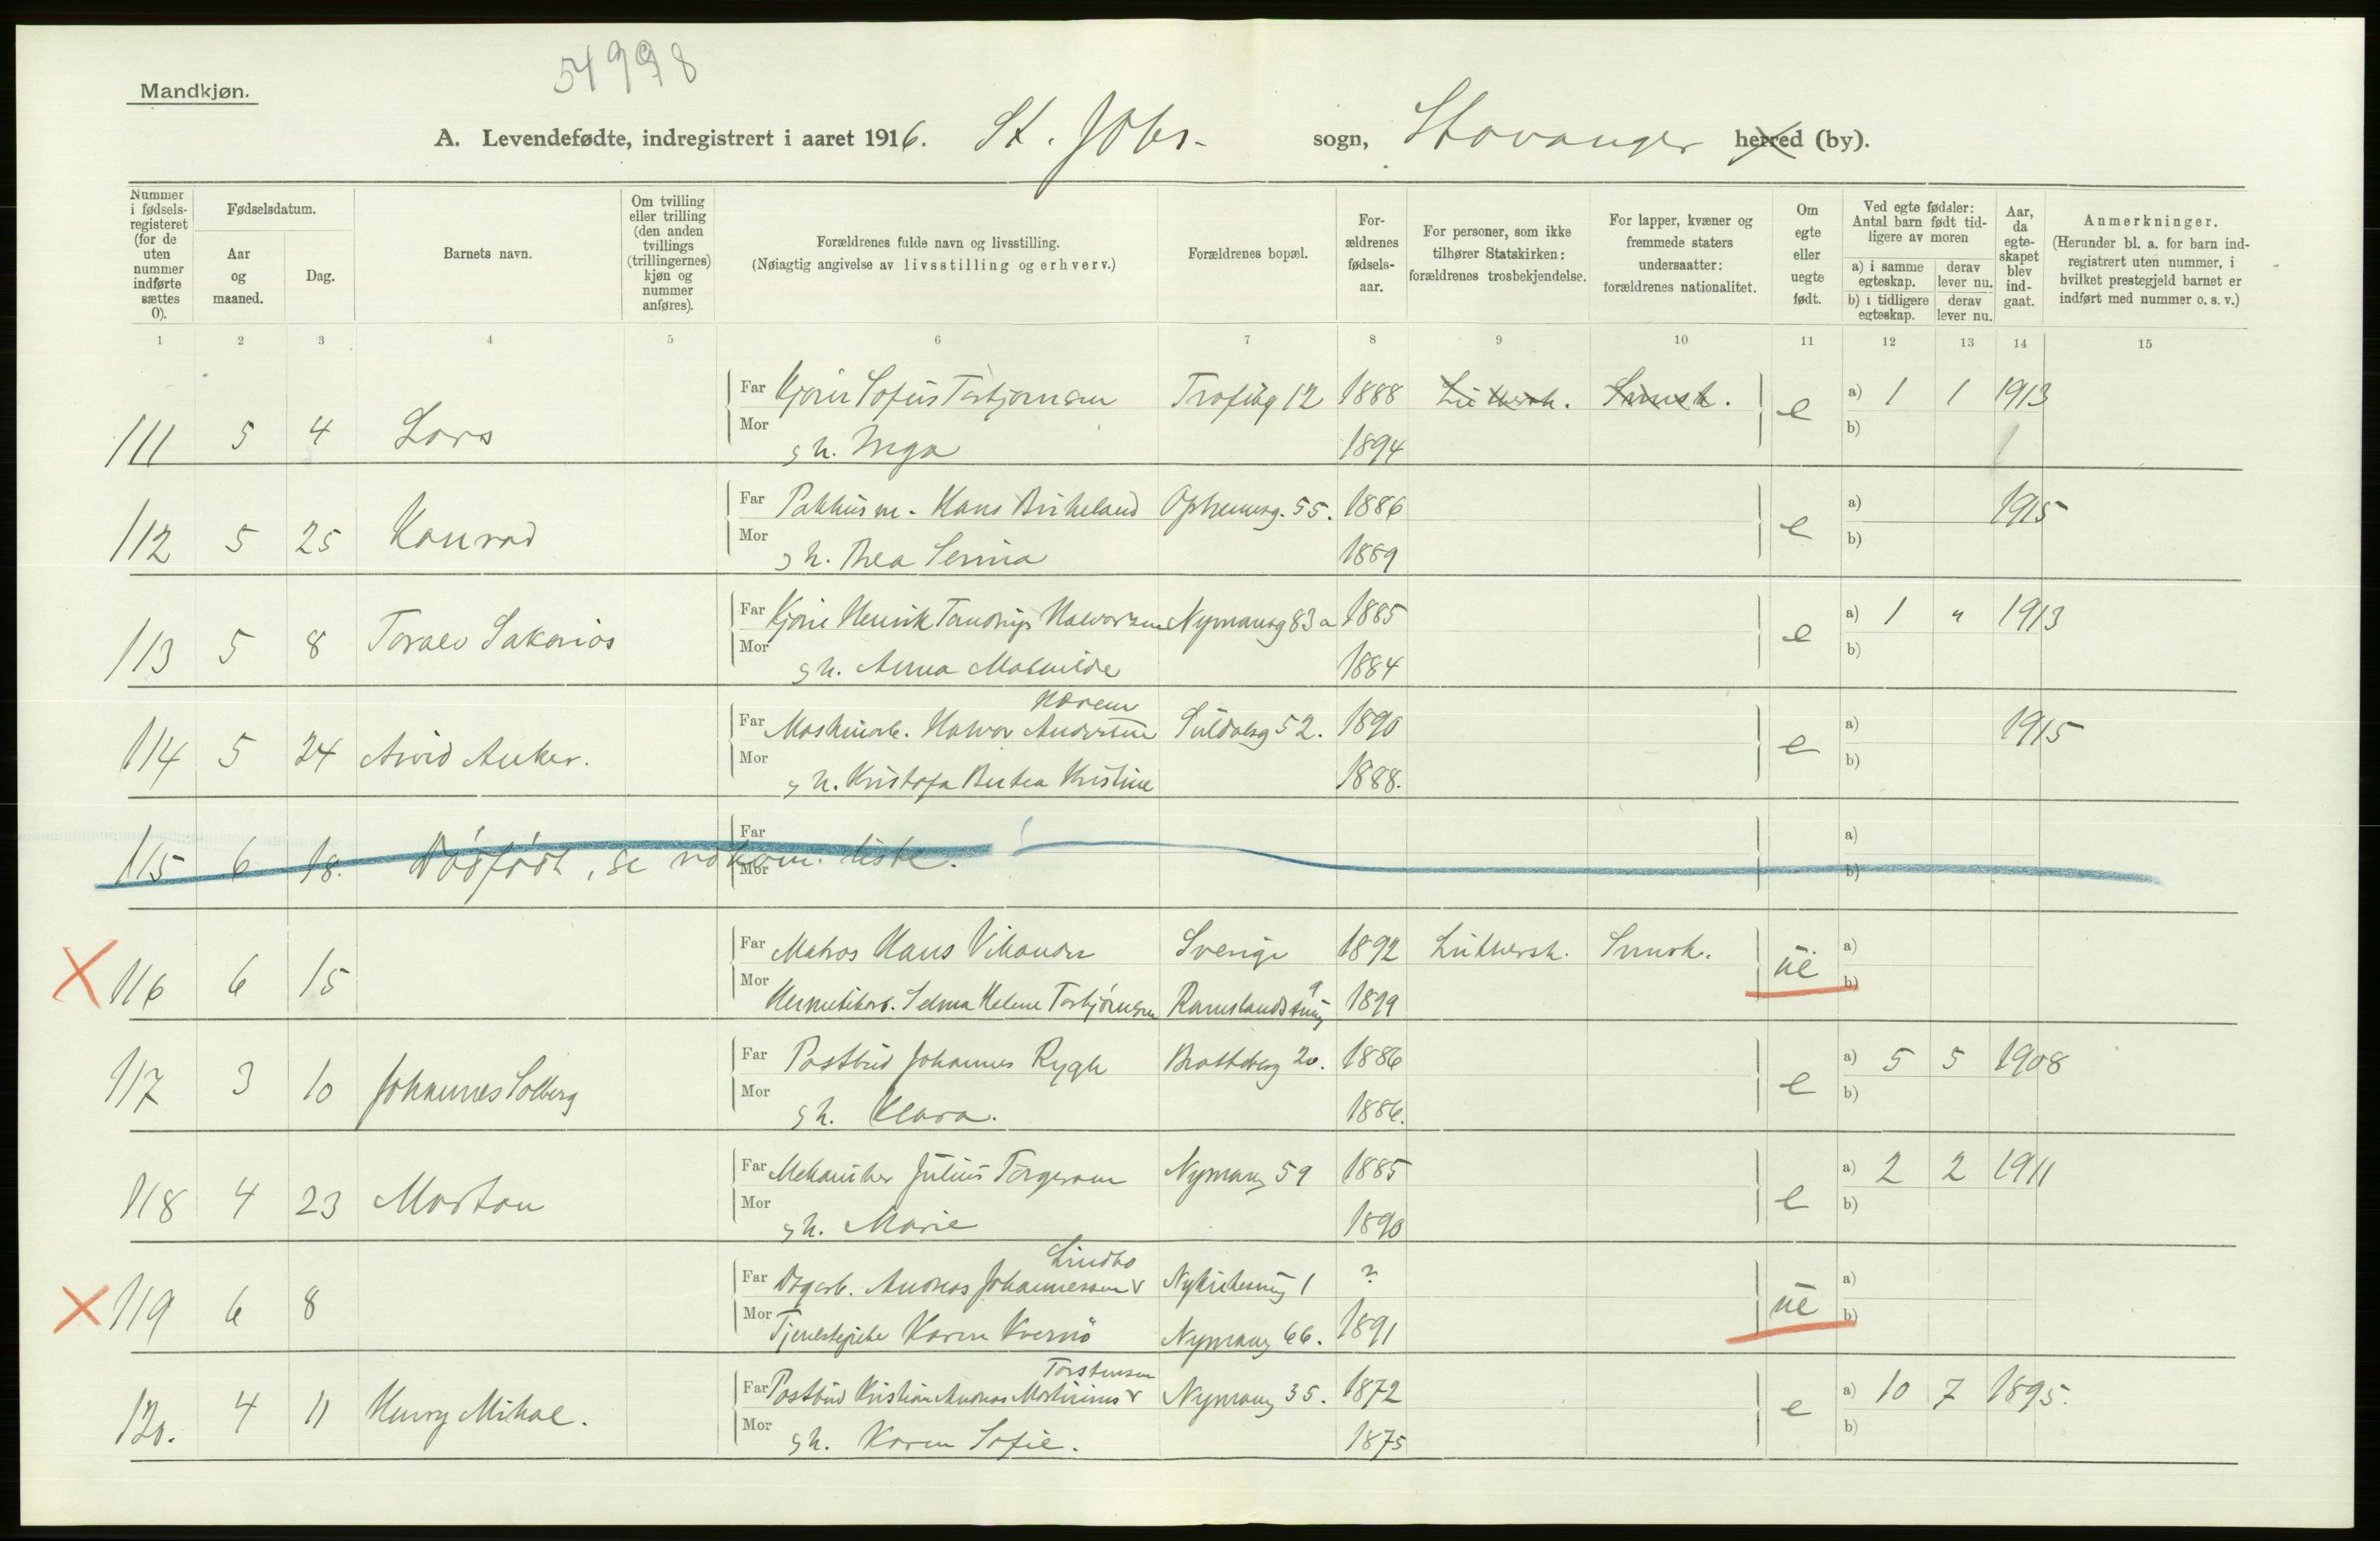 54998
Mandkjøn.
A. Levendefødte, indregistrert i aaret 1916. St. Johs. sogn, Stavanger herred (by).
Nummer i fødselsregisteret (for de uten nummer indførte sættes 0).
Fødselsdatum.
Aar og maaned.
Dag.
Barnets navn.
Om tvilling eller trilling (den anden tvillings (trillingernes) kjøn og nummer anføres).
Forældrenes fulde navn og livsstilling.
(Nøiagtig angivelse av livsstilling og erhverv.)
Forældrenes bopæl.
Forældrenes fødselsaar.
For personer, som ikke tilhører Statskirken: forældrenes trosbekjendelse.
For lapper, kvæner og fremmede staters undersaatter: forældrenes nationalitet.
Om egte eller uegte født.
Ved egte fødsler: Antal barn født tidligere av moren
a) i samme egteskap. derav lever nu.
b) i tidligere egteskap. derav lever nu.
Aar, da egteskapet blev indgaat.
Anmerkninger.
(Herunder bl. a. for barn indregistrert uten nummer, i hvilket prestegjeld barnet er indført med nummer o. s. v.)
1 2 3 4 5 6 7 8 9 10 11 12 13 14 15
Far Sofus Torbjørnsen 12 1888 Luthersk. Svensk. e a) 1 1 1913
111 5 4 Lars
Mor h. Inga 1894 b)
Far Pakhusm. Hans Birkeland 55. 1886 e a) 1915
112 5 25 Konrad
Mor h. Thea Serina 1889 b)
Far Henrik Halvorsen Nymansg 83 a 1885 e a) 1 " 1913
113 5 8 Toralv Sakarias
Mor h. Anna Mathilde 1884 b)
Far Maskinarb. Halvor Andersen Suldalsg 52. 1890 e a) 1915
114 5 24 Arvid Anker.
Mor h. Kristofa Bertea Kristine 1888. b)
115 6 18. Dødfødt, se liste.
Far a)
Mor b)
Far Matros Hans Vikander Sverige 1892 Luthersk. Svensk. ue a)
X 116 6 15
Mor Hermetikarb. Selma Helene Torbjørnsen Ramslands 9 1899 b)
Far Postbud Johannes Rygh 20. 1886 e a) 5 5 1908
117 3 10 Johannes Solberg
Mor h. Klara. 1886. b)
Far Mekaniker Julius Torgersen Nymansg 59 1885 e a) 2 2 1911
118 4 23 Morton
Mor h. Marie 1890 b)
Lindbo
Far Andreas Johannessen v 1 ? ue a)
X 119 6 8
Mor Tjenestepike Karen Nymansg 66. 1891 b)
Torstensen
Far Postbud Kristian Andreas v Nymansg 35. 1872 e a) 10 7 1895.
120. 4 11 Henry Mikal.
Mor h. Karen Sofie. 1875 b)